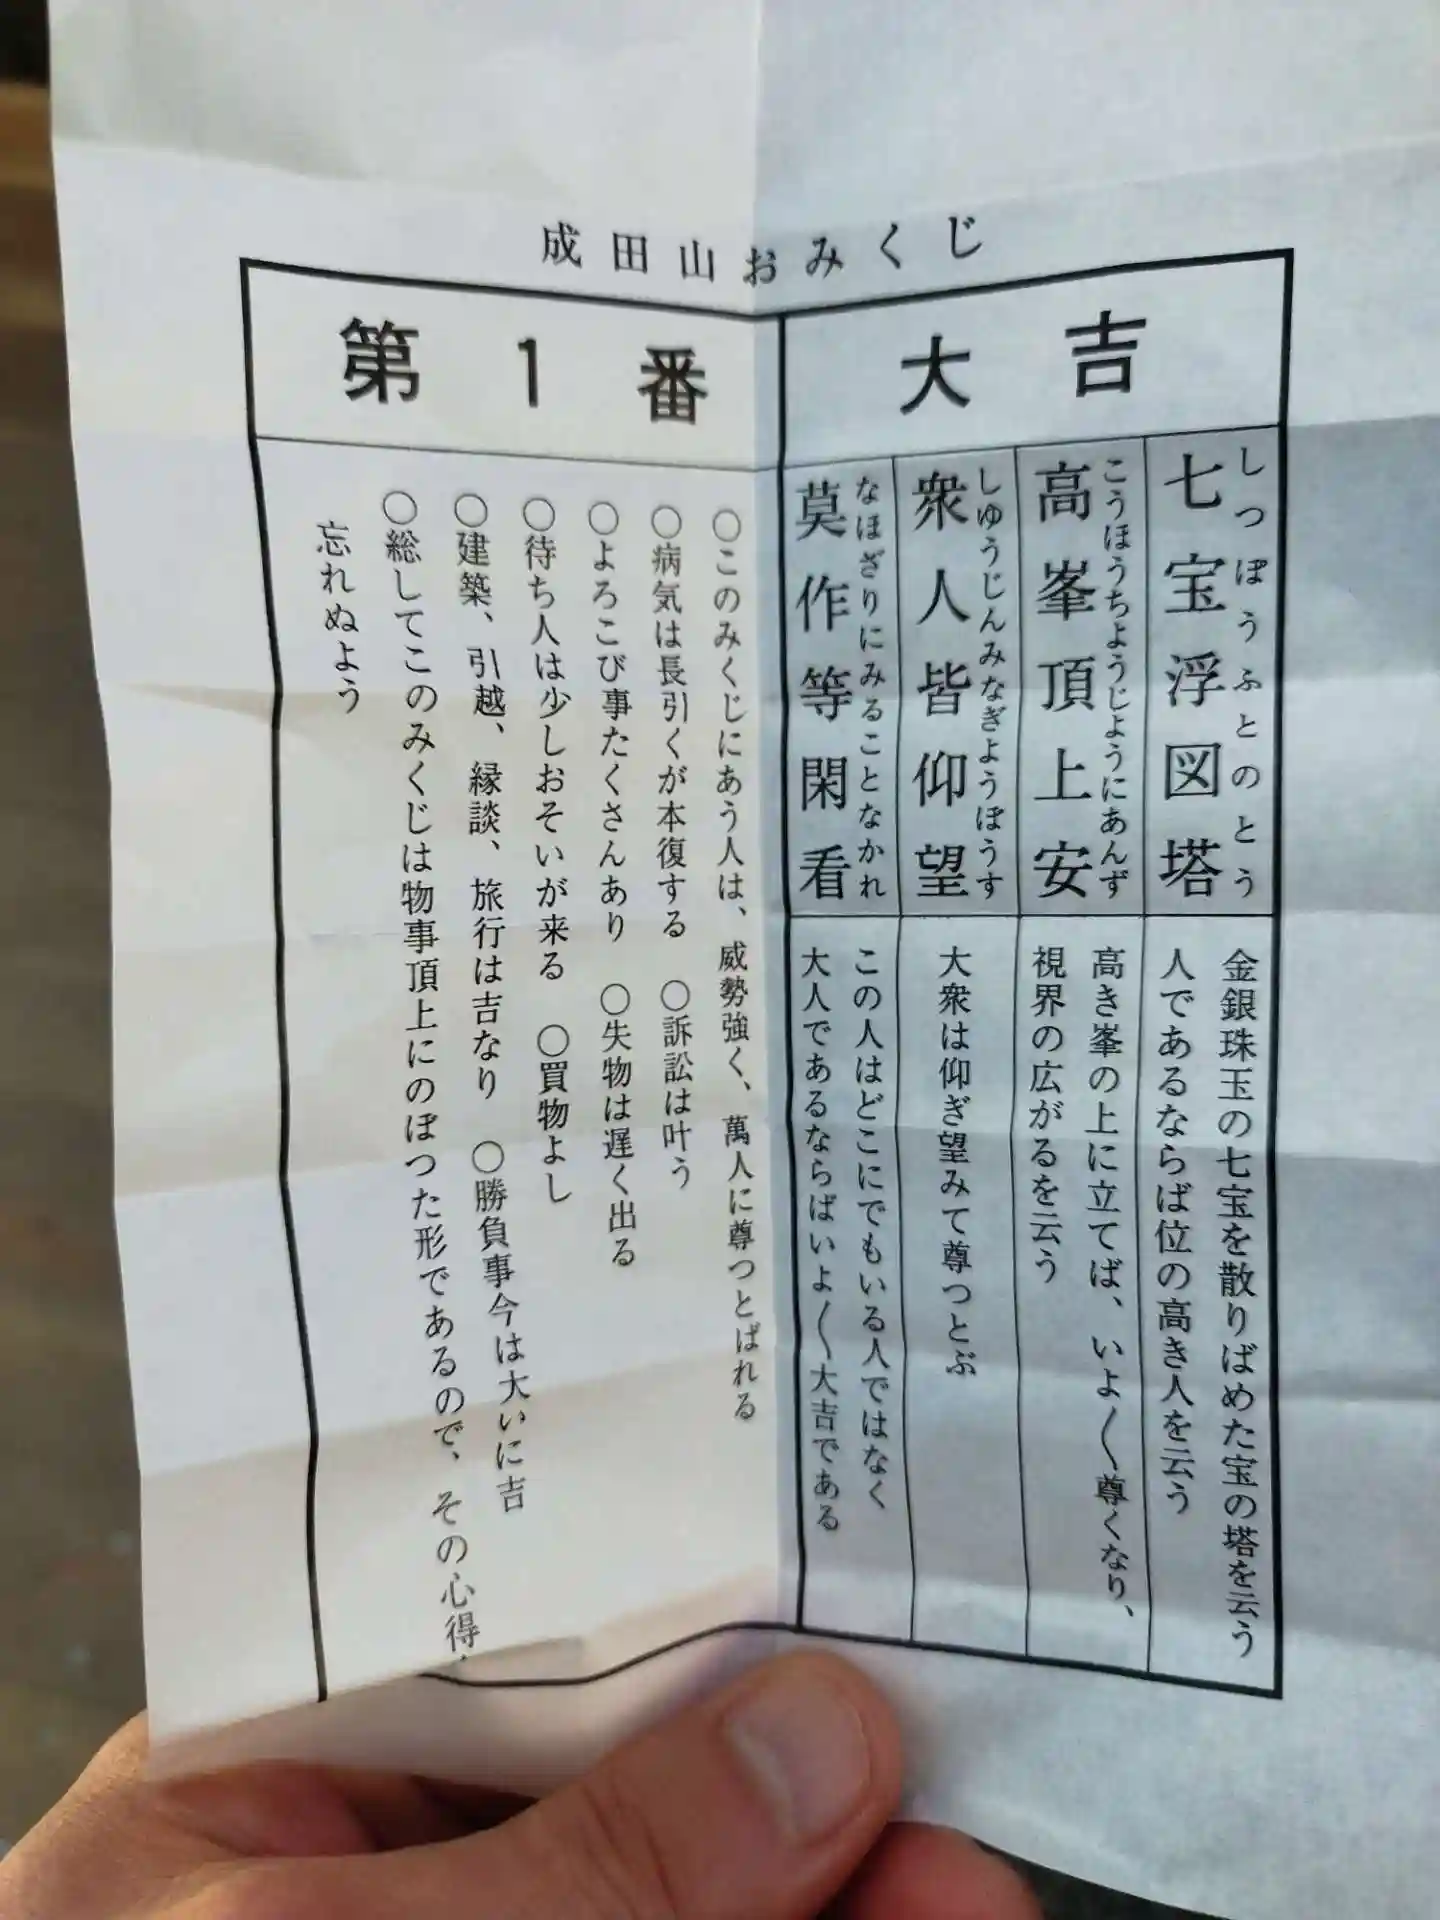 成田山おみくじ
第1番
大吉
七宝浮図塔
しつぽうふとのとう
金銀珠玉の七宝を散りばめた宝の塔を云う
人であるならば位の高き人を云う
高峯頂上安
こうほうちようじようにあんず
高き峯の上に立てば、いよ〱尊くなり、
視界の広がるを云う
衆人皆仰望
しゆうじんみなぎようぼうす
大衆は仰ぎ望みて尊つとぶ
莫作等閑看
なほざりにみることなかれ
この人はどこにでもいる人ではなく
大人であるならばいよ〱大吉である
○このみくじにあう人は、威勢強く、萬人に尊つとばれる
○病気は長引くが本復する ○訴訟は叶う
○よろこび事たくさんあり ○失物は遅く出る
○待ち人は少しおそいが来る ○買物よし
○建築、引越、縁談、旅行は吉なり ○勝負事今は大いに吉
○総してこのみくじは物事頂上にのぼつた形であるので、その心得
忘れぬよう